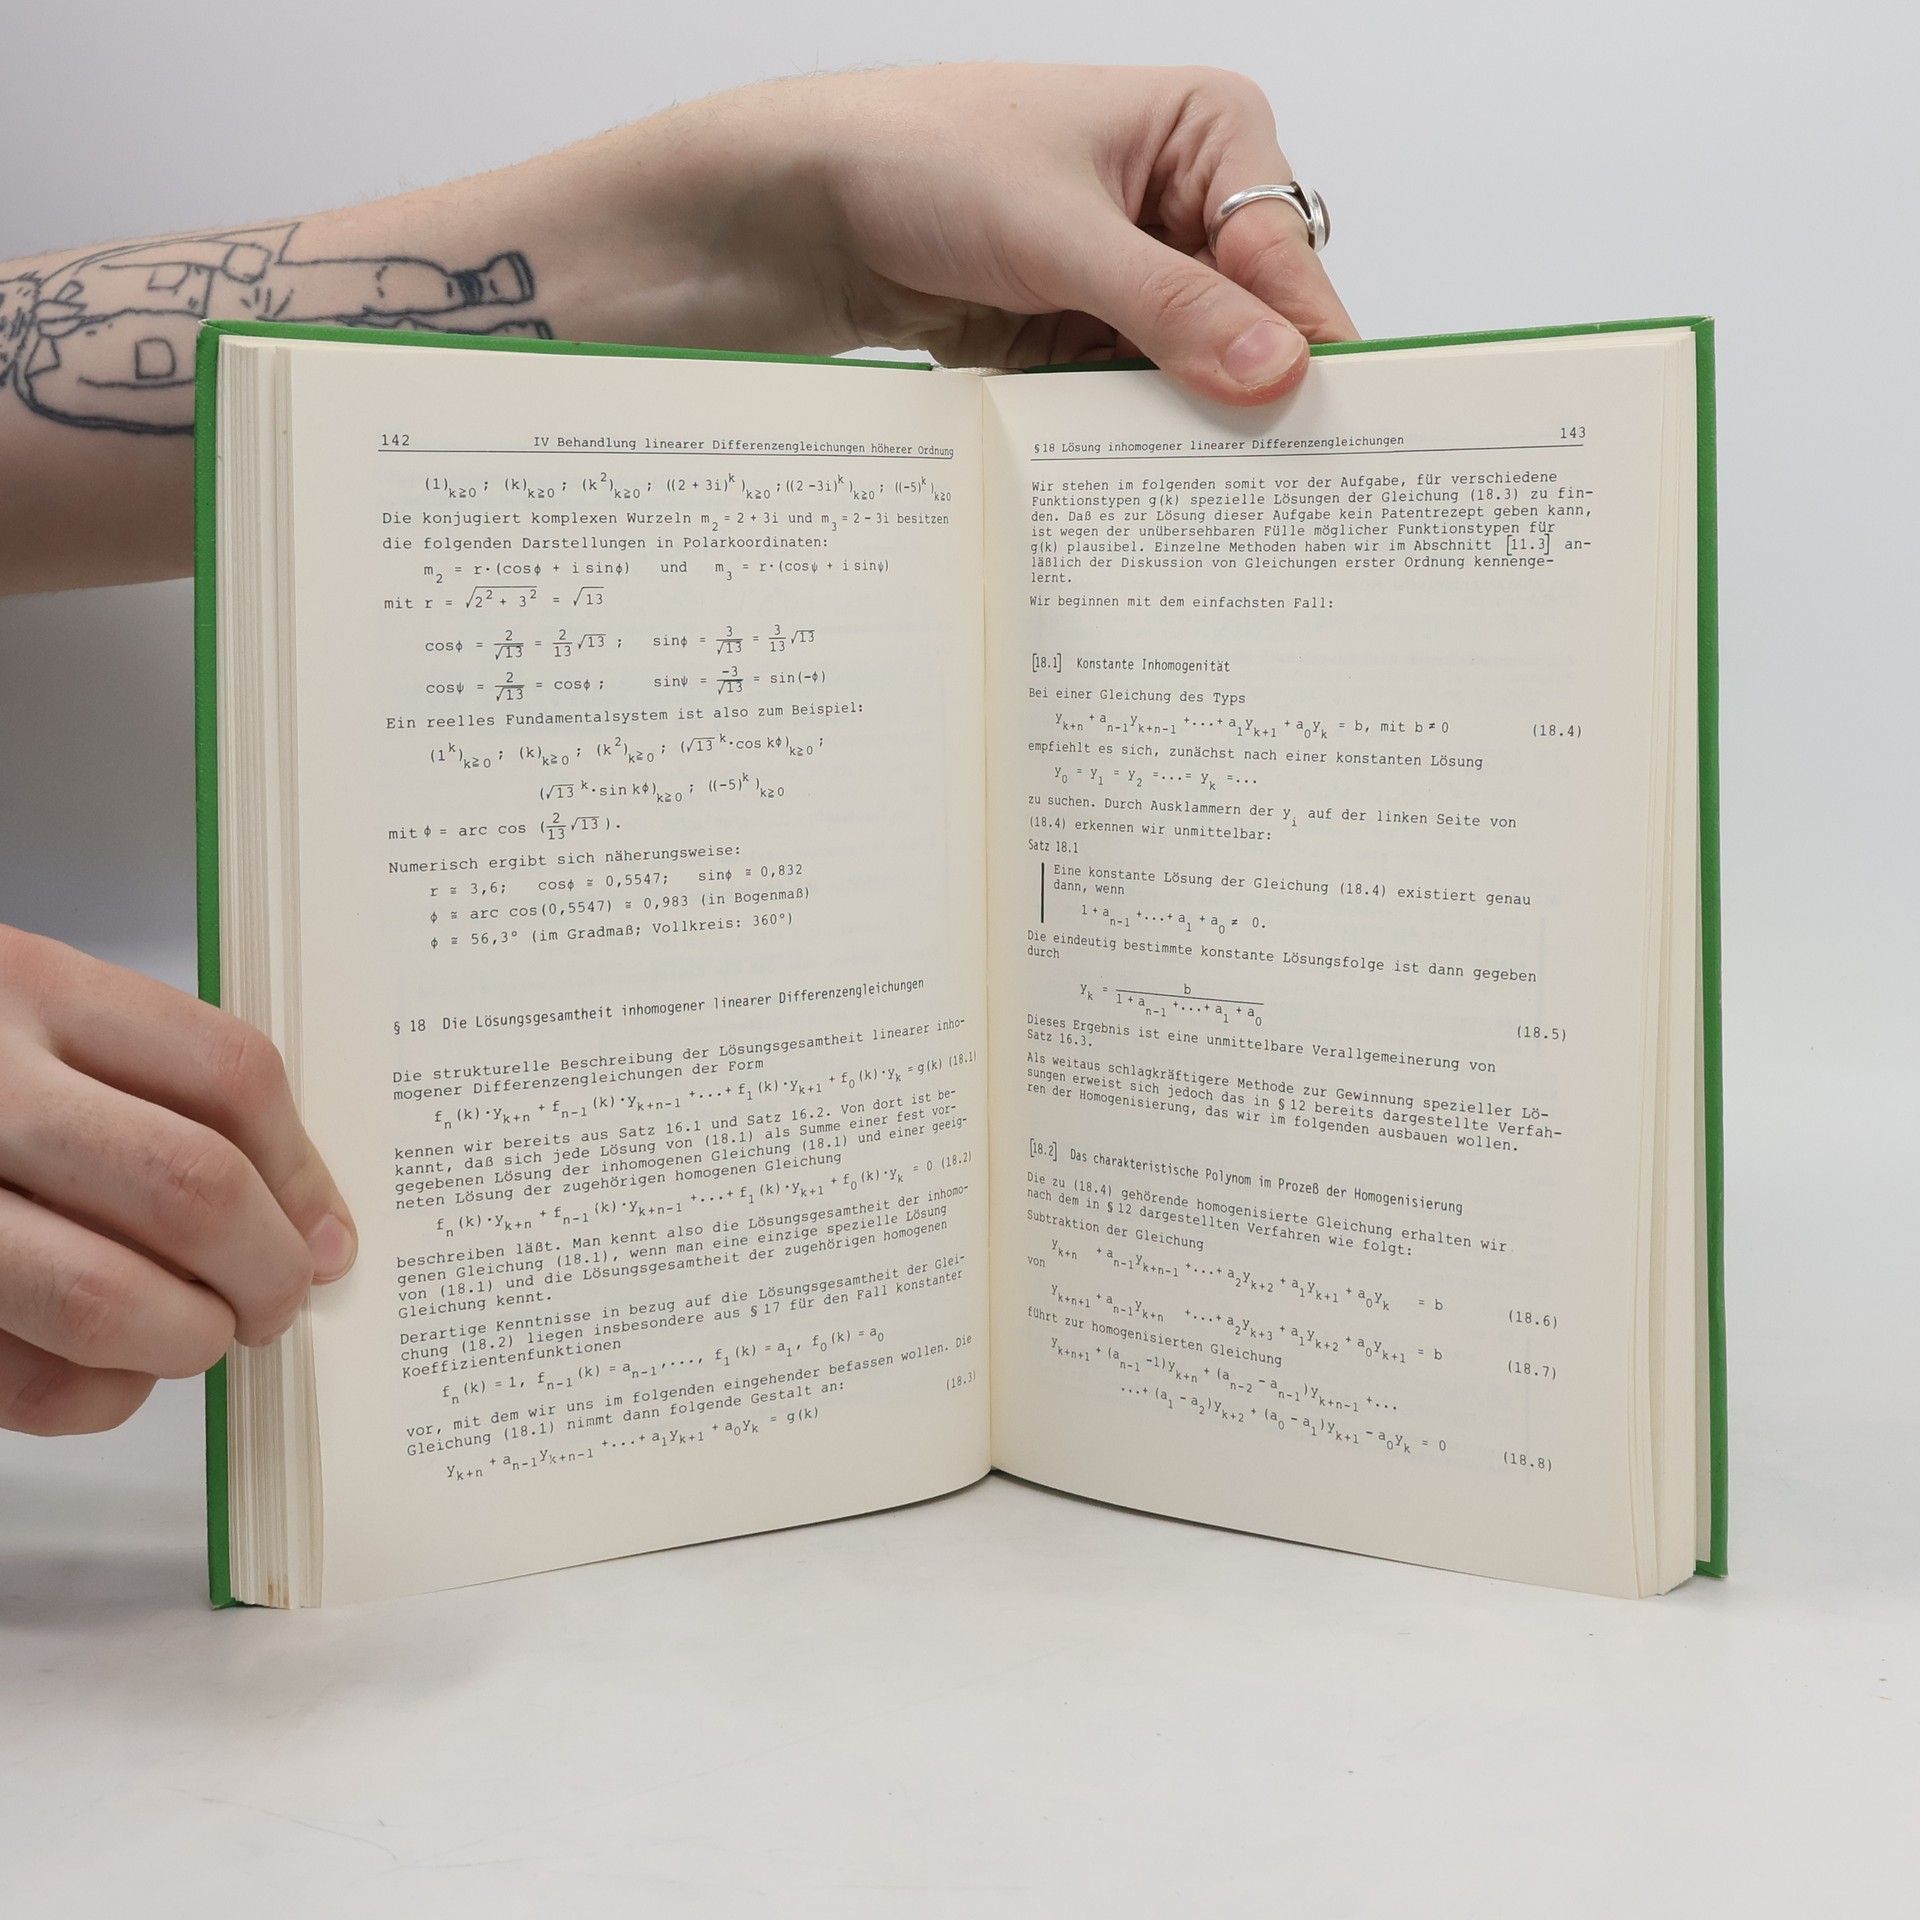 142 IV Behandlung linearer Differenzengleichungen höherer Ordnung
(1)_{k≧0} ; (k)_{k≧0} ; (k²)_{k≧0} ; ((2 + 3i)^k)_{k≧0} ; ((2 - 3i)^k)_{k≧0} ; ((-5)^k)_{k≧0}
Die konjugiert komplexen Wurzeln m₂ = 2 + 3i und m₃ = 2 - 3i besitzen
die folgenden Darstellungen in Polarkoordinaten:
m₂ = r·(cosφ + i sinφ) und m₃ = r·(cosψ + i sinψ)
mit r = √(2² + 3²) = √13
cosφ = 2/√13 = 2/13 √13 ; sinφ = 3/√13 = 3/13 √13
cosψ = 2/√13 = cosφ ; sinψ = -3/√13 = sin(-φ)
Ein reelles Fundamentalsystem ist also zum Beispiel:
(1^k)_{k≧0} ; (k)_{k≧0} ; (k²)_{k≧0} ; (√13^k·cos kφ)_{k≧0} ;
(√13^k·sin kφ)_{k≧0} ; ((-5)^k)_{k≧0}
mit φ = arc cos (2/13 √13).
Numerisch ergibt sich näherungsweise:
r ≅ 3,6; cosφ ≅ 0,5547; sinφ ≅ 0,832
φ ≅ arc cos(0,5547) ≅ 0,983 (in Bogenmaß)
φ ≅ 56,3° (im Gradmaß; Vollkreis: 360°)
§ 18 Die Lösungsgesamtheit inhomogener linearer Differenzengleichungen
Die strukturelle Beschreibung der Lösungsgesamtheit linearer inho-
mogener Differenzengleichungen der Form
f_n(k)·y_{k+n} + f_{n-1}(k)·y_{k+n-1} +...+ f₁(k)·y_{k+1} + f₀(k)·y_k = g(k) (18.1)
kennen wir bereits aus Satz 16.1 und Satz 16.2. Von dort ist be-
kannt, daß sich jede Lösung von (18.1) als Summe einer fest vor-
gegebenen Lösung der inhomogenen Gleichung (18.1) und einer geeig-
neten Lösung der zugehörigen homogenen Gleichung
f_n(k)·y_{k+n} + f_{n-1}(k)·y_{k+n-1} +...+ f₁(k)·y_{k+1} + f₀(k)·y_k = 0 (18.2)
beschreiben läßt. Man kennt also die Lösungsgesamtheit der inhomo-
genen Gleichung (18.1), wenn man eine einzige spezielle Lösung
von (18.1) und die Lösungsgesamtheit der zugehörigen homogenen
Gleichung kennt.
Derartige Kenntnisse in bezug auf die Lösungsgesamtheit der Glei-
chung (18.2) liegen insbesondere aus § 17 für den Fall konstanter
Koeffizientenfunktionen
f_n(k) = 1, f_{n-1}(k) = a_{n-1},..., f₁(k) = a₁, f₀(k) = a₀
vor, mit dem wir uns im folgenden eingehender befassen wollen. Die
Gleichung (18.1) nimmt dann folgende Gestalt an:
y_{k+n} + a_{n-1}y_{k+n-1} +...+ a₁y_{k+1} + a₀y_k = g(k) (18.3)
§ 18 Lösung inhomogener linearer Differenzengleichungen 143
Wir stehen im folgenden somit vor der Aufgabe, für verschiedene
Funktionstypen g(k) spezielle Lösungen der Gleichung (18.3) zu fin-
den. Daß es zur Lösung dieser Aufgabe kein Patentrezept geben kann,
ist wegen der unübersehbaren Fülle möglicher Funktionstypen für
g(k) plausibel. Einzelne Methoden haben wir im Abschnitt [11.3] an-
läßlich der Diskussion von Gleichungen erster Ordnung kennenge-
lernt.
Wir beginnen mit dem einfachsten Fall:
[18.1] Konstante Inhomogenität
Bei einer Gleichung des Typs
y_{k+n} + a_{n-1}y_{k+n-1} +...+ a₁y_{k+1} + a₀y_k = b, mit b ≠ 0 (18.4)
empfiehlt es sich, zunächst nach einer konstanten Lösung
y₀ = y₁ = y₂ =...= y_k =...
zu suchen. Durch Ausklammern der y_i auf der linken Seite von
(18.4) erkennen wir unmittelbar:
Satz 18.1
Eine konstante Lösung der Gleichung (18.4) existiert genau
dann, wenn
1 + a_{n-1} +...+ a₁ + a₀ ≠ 0.
Die eindeutig bestimmte konstante Lösungsfolge ist dann gegeben
durch
y_k = b/(1 + a_{n-1} +...+ a₁ + a₀) (18.5)
Dieses Ergebnis ist eine unmittelbare Verallgemeinerung von
Satz 16.3.
Als weitaus schlagkräftigere Methode zur Gewinnung spezieller Lö-
sungen erweist sich jedoch das in § 12 bereits dargestellte Verfah-
ren der Homogenisierung, das wir im folgenden ausbauen wollen.
[18.2] Das charakteristische Polynom im Prozeß der Homogenisierung
Die zu (18.4) gehörende homogenisierte Gleichung erhalten wir
nach dem in § 12 dargestellten Verfahren wie folgt:
Subtraktion der Gleichung
y_{k+n} + a_{n-1}y_{k+n-1} +...+ a₂y_{k+2} + a₁y_{k+1} + a₀y_k = b (18.6)
von
y_{k+n+1} + a_{n-1}y_{k+n} +...+ a₂y_{k+3} + a₁y_{k+2} + a₀y_{k+1} = b (18.7)
führt zur homogenisierten Gleichung
y_{k+n+1} + (a_{n-1} - 1)y_{k+n} + (a_{n-2} - a_{n-1})y_{k+n-1} +...
...+ (a₁ - a₂)y_{k+2} + (a₀ - a₁)y_{k+1} - a₀y_k = 0 (18.8)